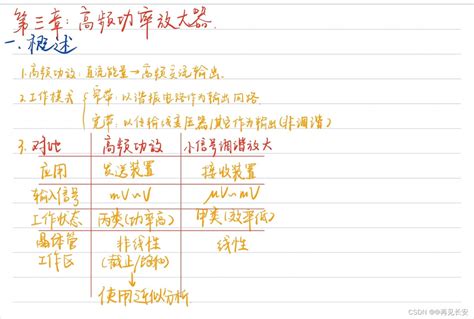 第三章:高频功率放大器.
一.概述
1.高频功放:直流能量→高频交流输出.
2.工作模式 窄带:以谐振电路作为输出网络
宽带:以传输线变压器/其它作为输出(非调谐)
3.对比 高频功放 小信号调谐放大
应用 发送装置 接收装置
输入信号 mV~V μV~mV
工作状态 丙类(功率高) 甲类(效率低)
晶体管工作区 非线性(截止/饱和) 线性
使用近似分析
CSDN @中再见长安